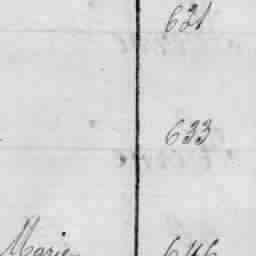 621
633
Marie 646